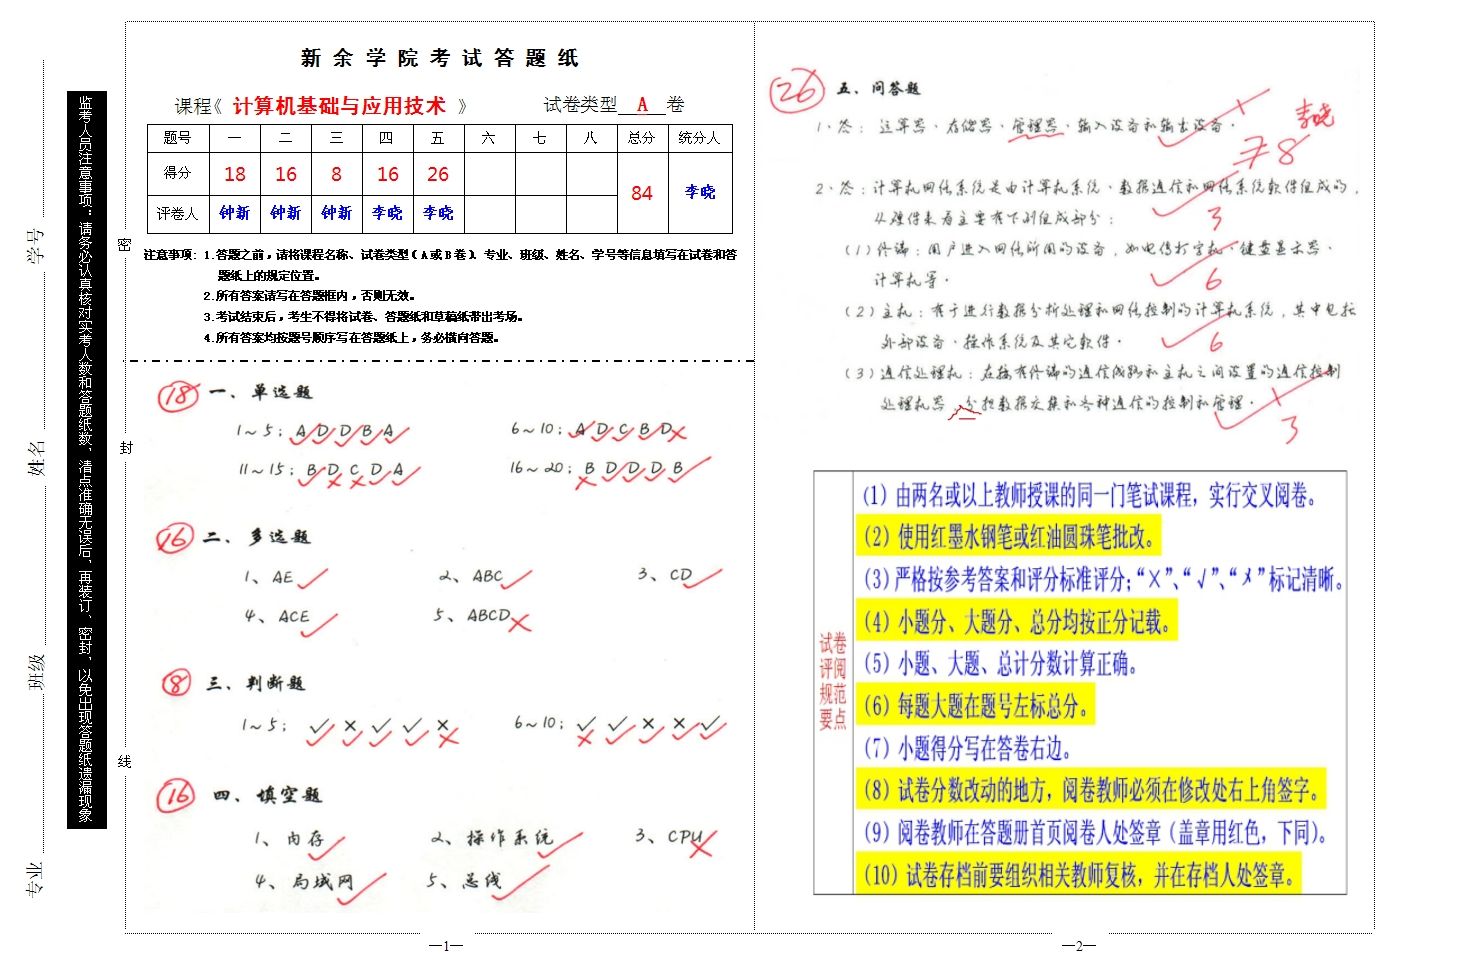 新余学院考试答题纸
课程《 计算机基础与应用技术 》 试卷类型 A 卷
题号 一 二 三 四 五 六 七 八 总分 统分人
得分 18 16 8 16 26 84 李晓
评卷人 钟新 钟新 钟新 李晓 李晓
注意事项: 1.答题之前，请将课程名称、试卷类型（A或B卷）、专业、班级、姓名、学号等信息填写在试卷和答
题纸上的规定位置。
2.所有答案请写在答题框内，否则无效。
3.考试结束后，考生不得将试卷、答题纸和草稿纸带出考场。
4.所有答案均按题号顺序写在答题纸上，务必横向答题。
监考人员注意事项：请务必认真核对实考人数和答题纸数，清点准确无误后，再装订、密封，以免出现答题纸遗漏现象
学号
姓名
班级
专业
密
封
线
18 一、单选题
1～5：A D D B A 6～10：A D C B D
11～15：B D C D A 16～20：B D D D B
16 二、多选题
1、AE 2、ABC 3、CD
4、ACE 5、ABCD
8 三、判断题
1～5：✓ × ✓ ✓ × 6～10：✓ ✓ × × ✓
16 四、填空题
1、内存 2、操作系统 3、CPU
4、局域网 5、总线
—1—
26 五、问答题
1、答：运算器、存储器、管理器、输入设备和输出设备。
李晓
8
2、答：计算机网络系统是由计算机系统、数据通信和网络系统软件组成的，
从硬件来看主要有下列组成部分：
3
（1）终端：用户进入网络所用的设备，如电传打字机、键盘显示器、
计算机等。
6
（2）主机：有于进行数据分析处理和网络控制的计算机系统，其中包括
外部设备、操作系统及其它软件。
6
（3）通信处理机：在接有终端的通信线路和主机之间设置的通信控制
处理机器，分担数据交集和各种通信的控制和管理。
3
试卷评阅规范要点
（1）由两名或以上教师授课的同一门笔试课程，实行交叉阅卷。
（2）使用红墨水钢笔或红油圆珠笔批改。
（3）严格按参考答案和评分标准评分；“×”、“√”、“〤”标记清晰。
（4）小题分、大题分、总分均按正分记载。
（5）小题、大题、总计分数计算正确。
（6）每题大题在题号左标总分。
（7）小题得分写在答卷右边。
（8）试卷分数改动的地方，阅卷教师必须在修改处右上角签字。
（9）阅卷教师在答题册首页阅卷人处签章（盖章用红色，下同）。
（10）试卷存档前要组织相关教师复核，并在存档人处签章。
—2—